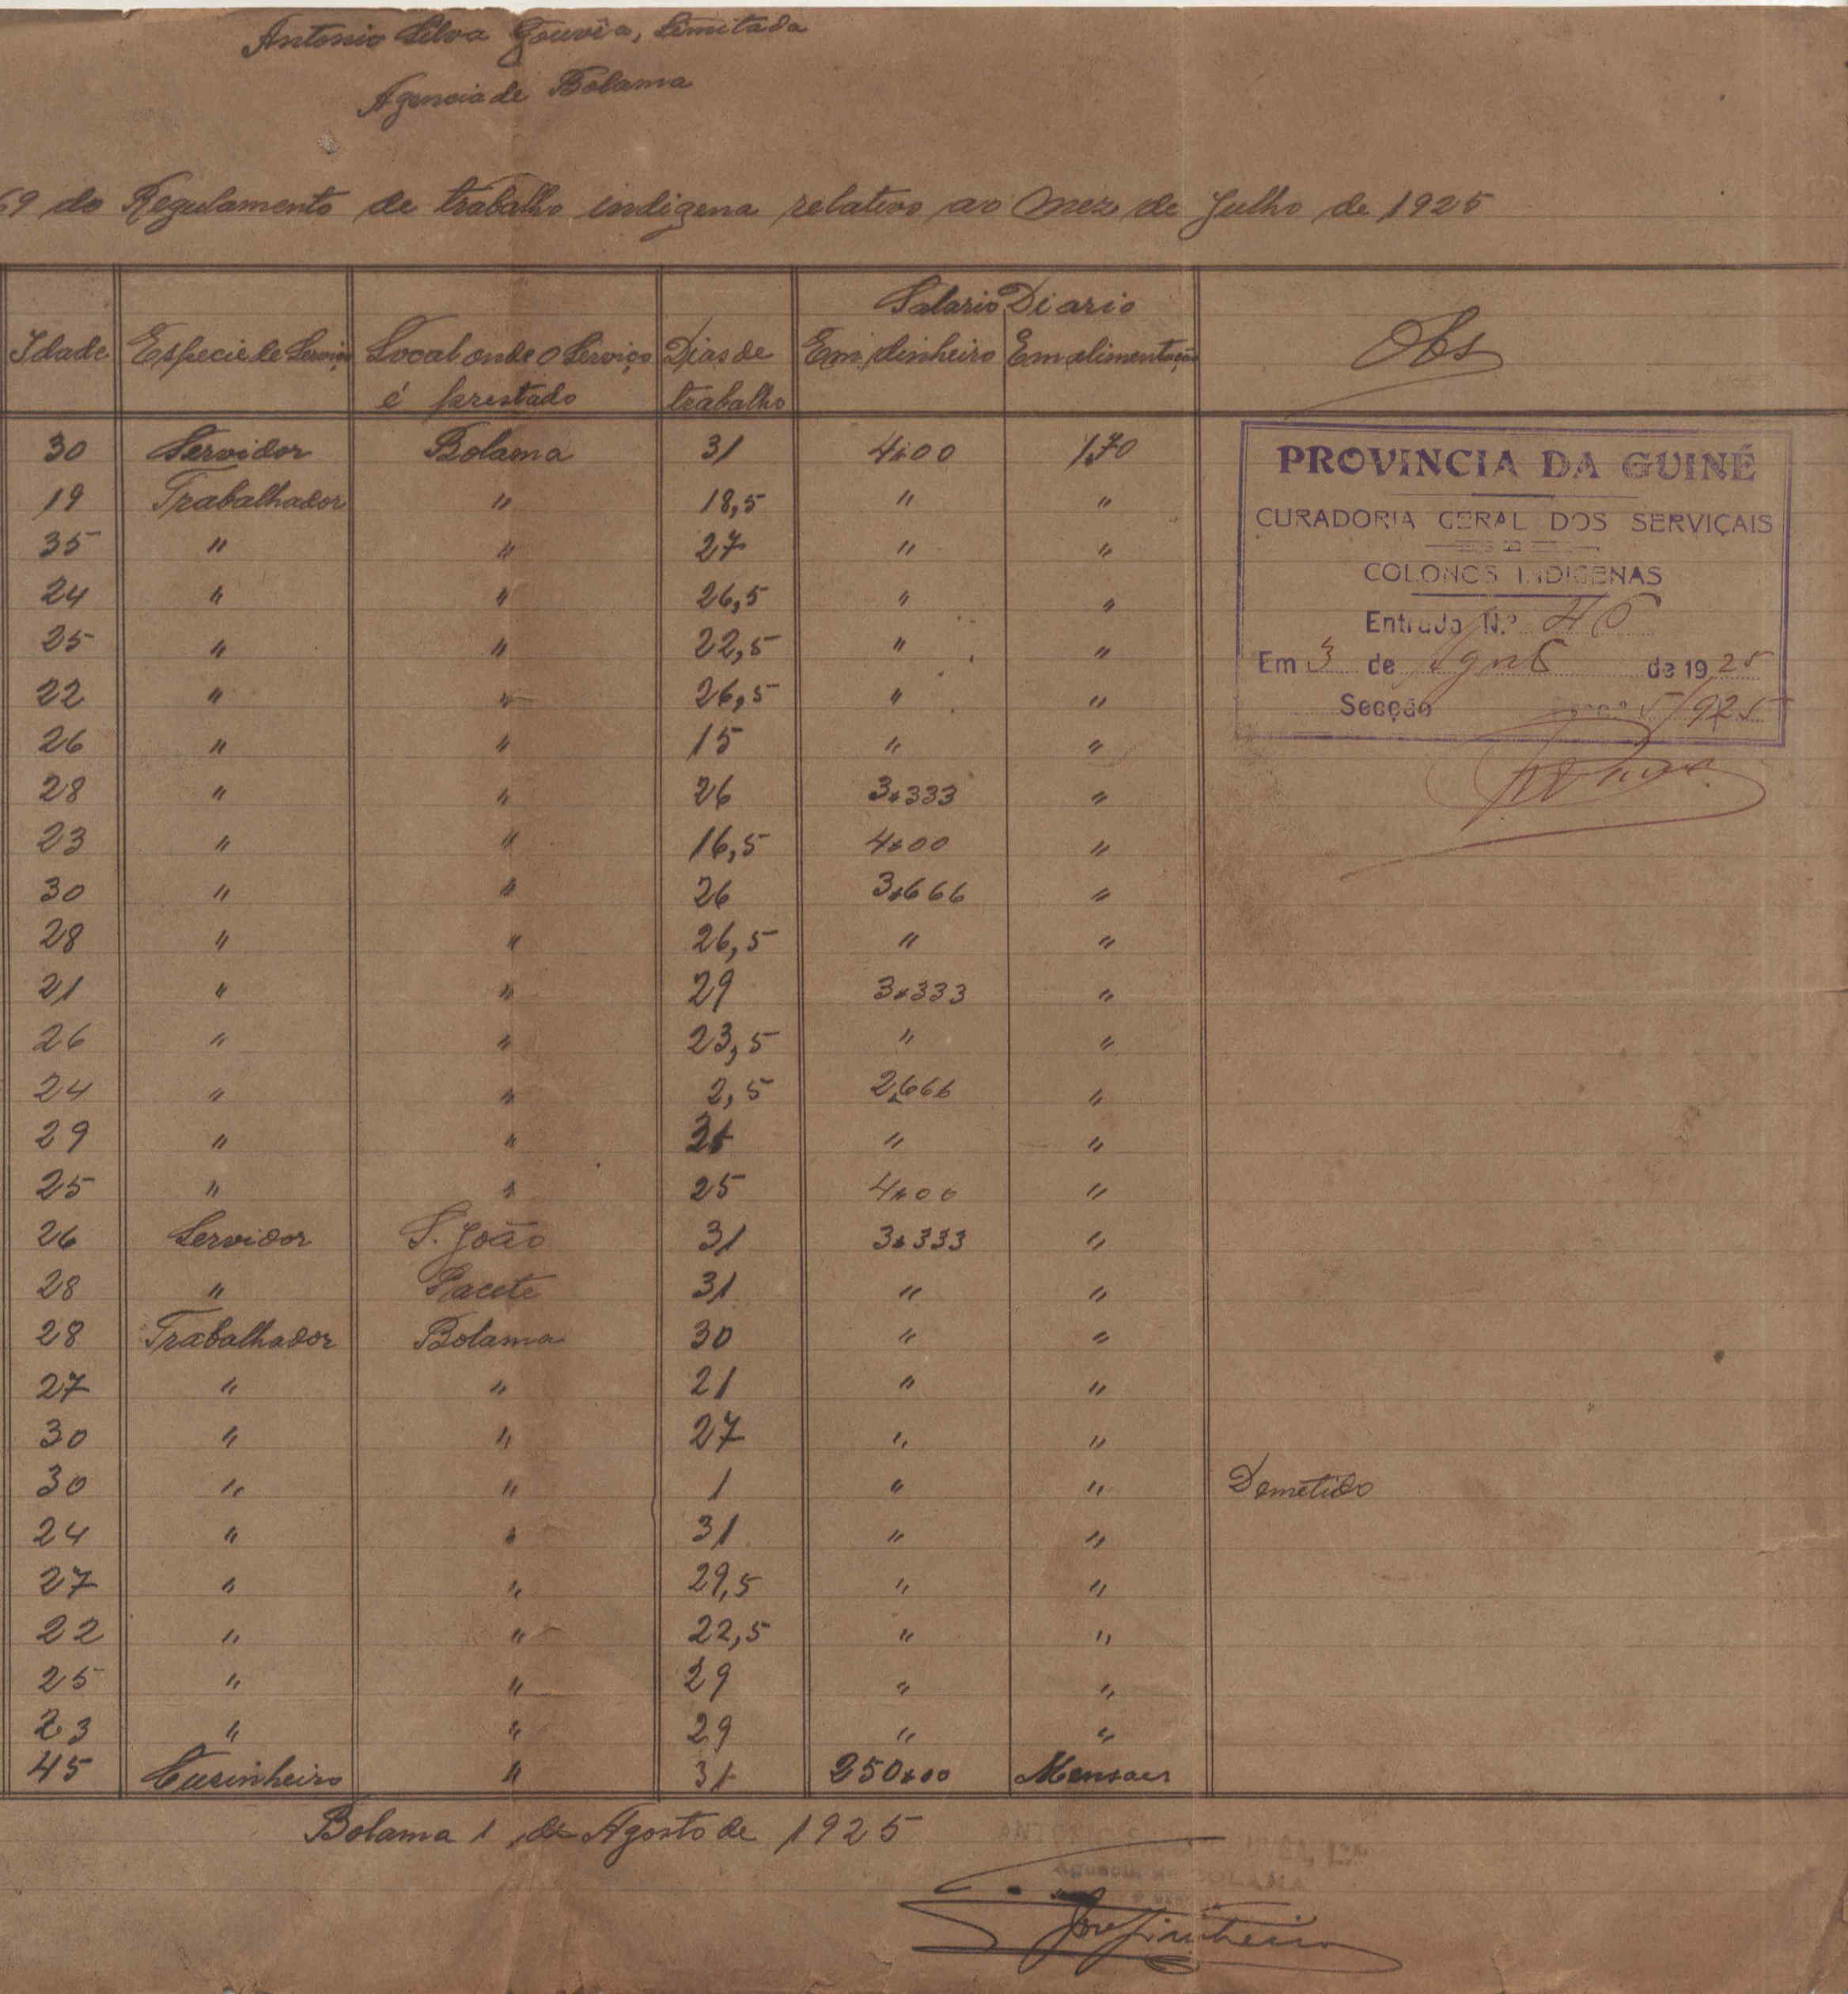 Antonio Silva Gouvêa, Limitada
Agencia de Bolama
69 do Regulamento de trabalho indigena relativo ao mez de Julho de 1925
Salario Diario
Idade Especie de Serviço Local onde o Serviço Dias de Em dinheiro Em alimentação Obs
é prestado trabalho
30 Servidor Bolama 31 4$00 1$70
19 Trabalhador " 18,5 " "
35 " " 27 " "
24 " " 26,5 " "
25 " " 22,5 " "
22 " " 26,5 " "
26 " " 15 " "
28 " " 26 3$333 "
23 " " 16,5 4$00 "
30 " " 26 3$666 "
28 " " 26,5 " "
21 " " 29 3$333 "
26 " " 23,5 " "
24 " " 2,5 2$666 "
29 " " " "
25 " " 25 4$00 "
26 Servidor S. João 31 3$333 "
28 " Pacete 31 " "
28 Trabalhador Bolama 30 " "
27 " " 21 " "
30 " " 27 " "
30 " " 1 " " Demetido
24 " " 31 " "
27 " " 29,5 " "
22 " " 22,5 " "
25 " " 29 " "
23 " " 29 " "
45 Cusinheiro " 31 250$00 Mensaes
PROVINCIA DA GUINÉ
CURADORIA GERAL DOS SERVIÇAIS
COLONOS INDIGENAS
Entrada N.º 46
Em 3 de Agosto de 1925
Secção 5/925
Bolama 1 de Agosto de 1925
Agencia de BOLAMA
José Pinheiro